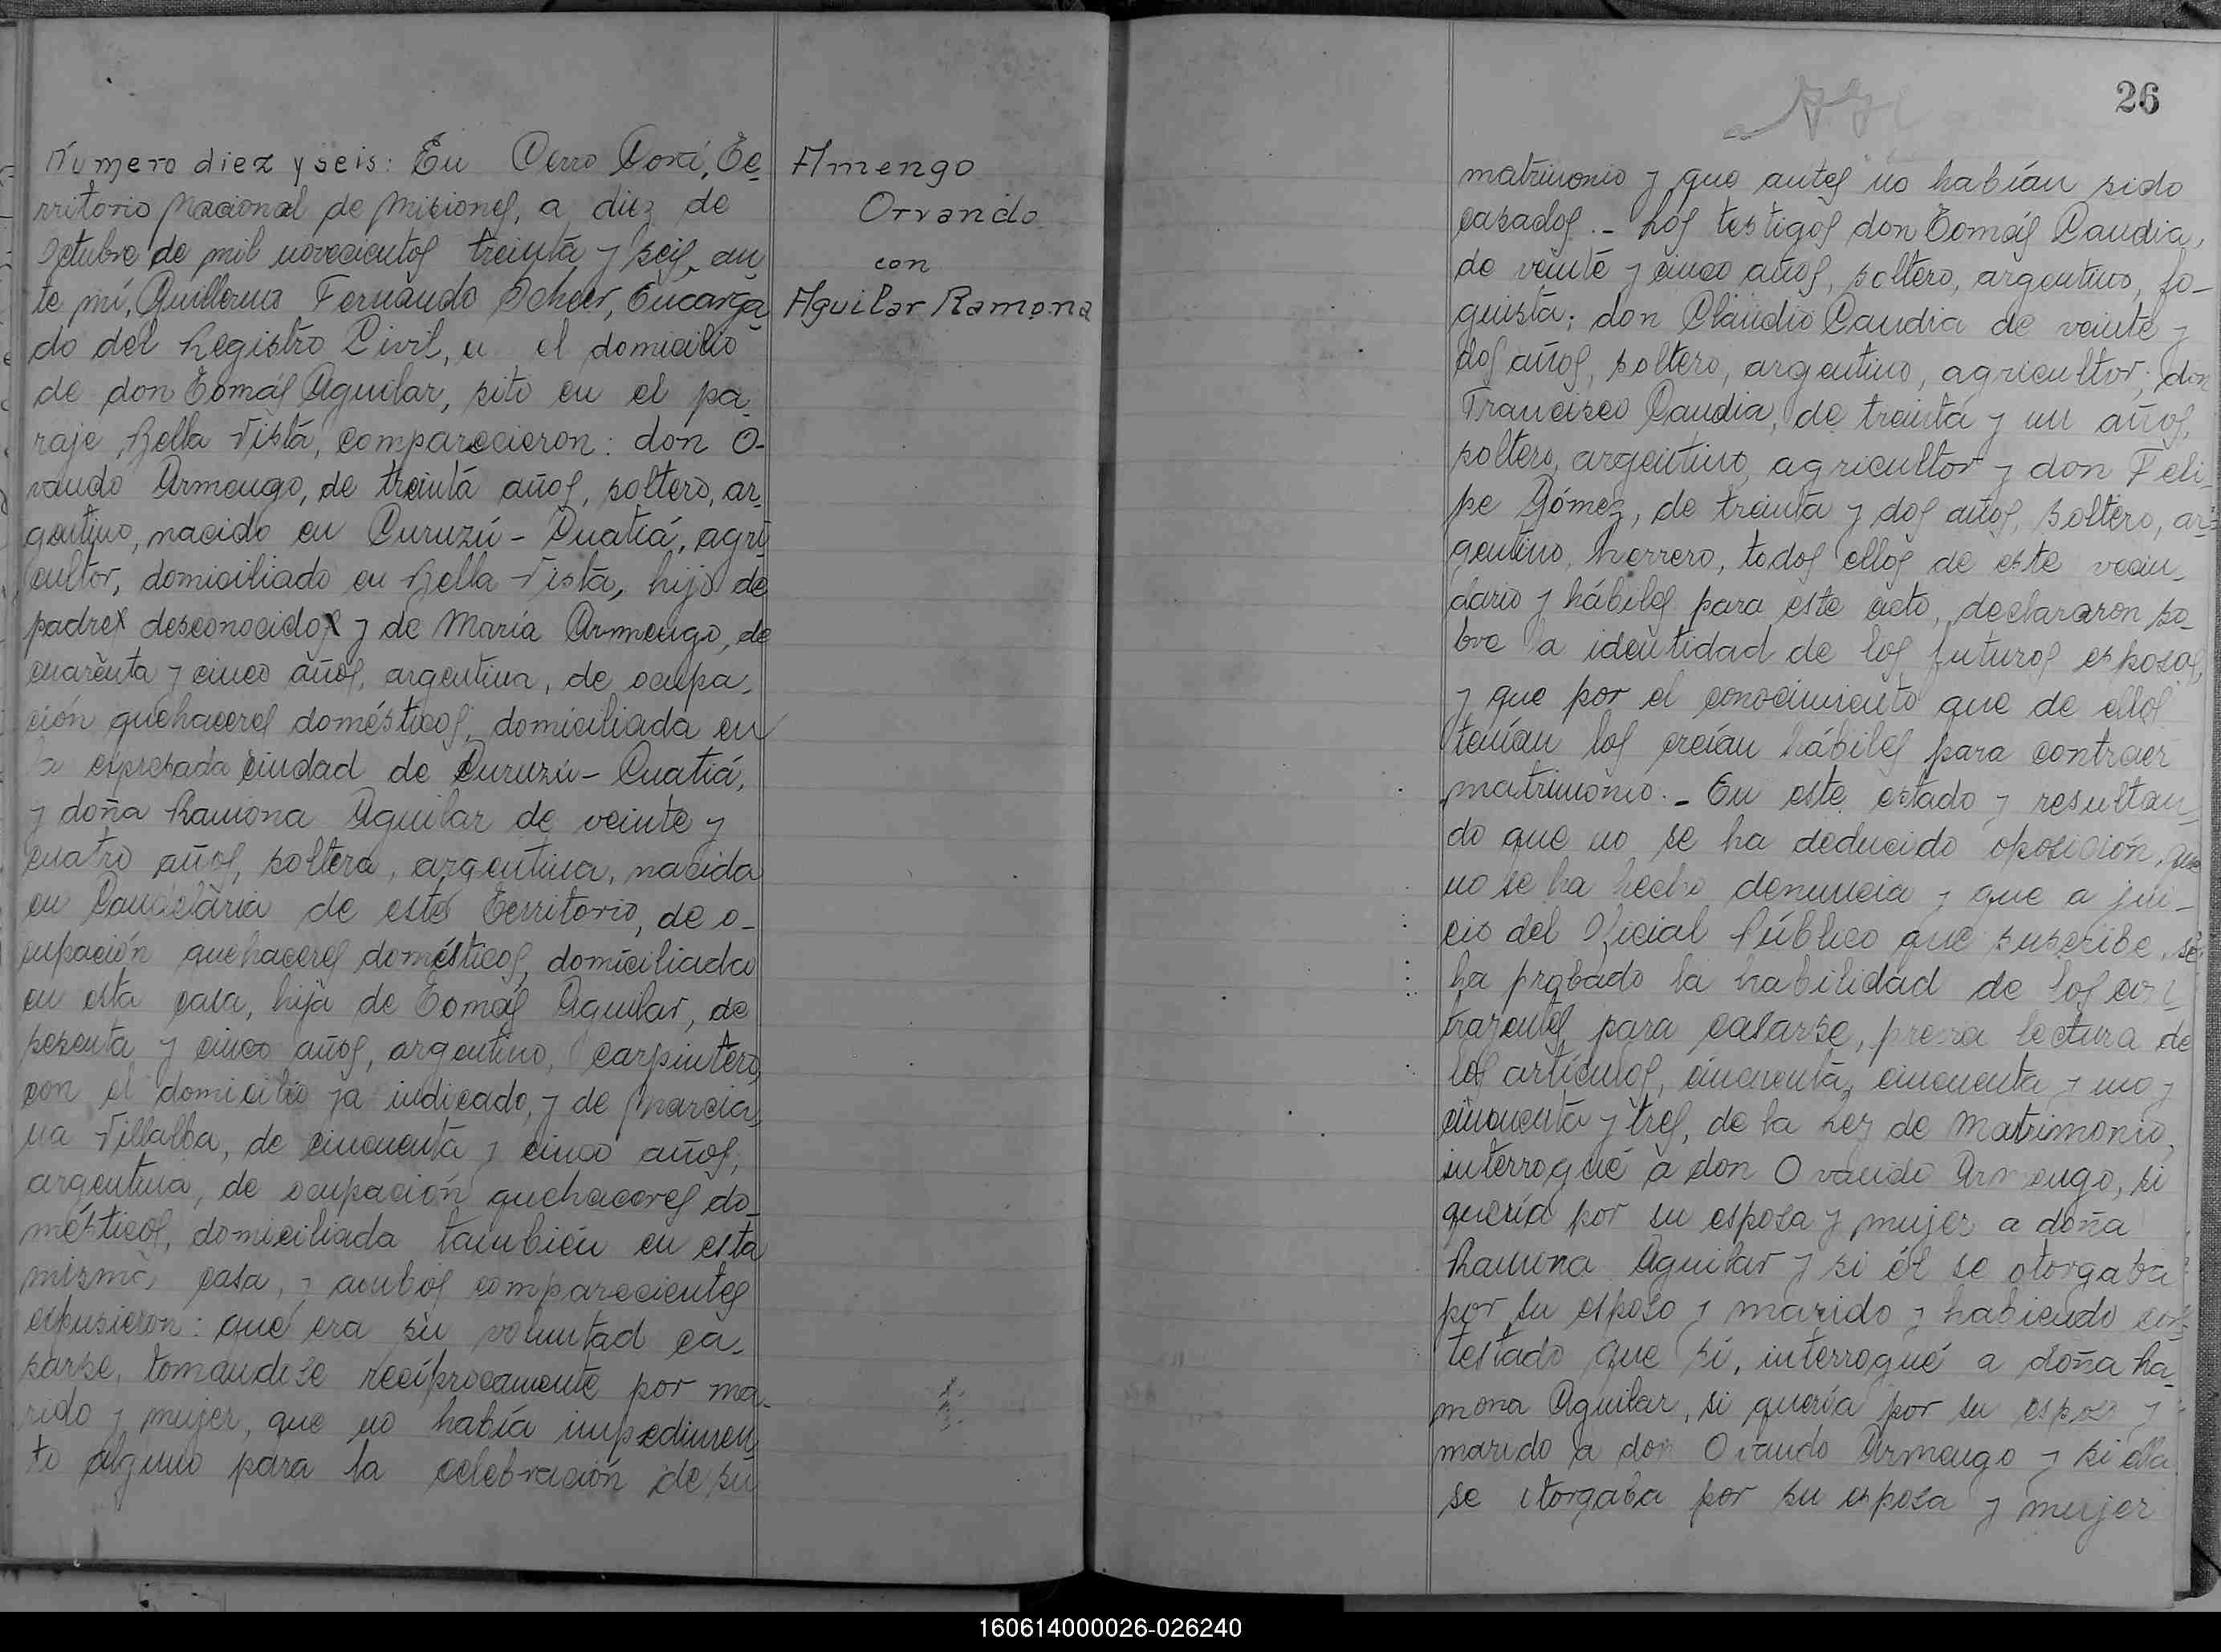 Número diez y seis: En Cerro Corá, Te-
rritorio Nacional de Misiones, a diez de
Octubre de mil novecientos treinta y seis, an-
te mí, Guillermo Fernando Scheer, Encarga-
do del Registro Civil, en el domicilio
de don Tomás Aguilar, sito en el pa-
raje Bella Vista, comparecieron: don O-
vando Armengo, de treinta años, soltero, ar-
gentino, nacido en Curuzú-Cuatiá, agri-
cultor, domiciliado en Bella Vista, hijo de
padre desconocido y de María Armengo, de
cuarenta y cinco años, argentina, de ocupa-
ción quehaceres domésticos, domiciliada en
la expresada ciudad de Curuzú-Cuatiá,
y doña Ramona Aguilar de veinte y
cuatro años, soltera, argentina, nacida
en Candelaria de este Territorio, de o-
cupación quehaceres domésticos, domiciliada
en esta casa, hija de Tomás Aguilar, de
sesenta y cinco años, argentino, carpintero,
con el domicilio ya indicado, y de Marcia-
na Villalba, de cincuenta y cinco años,
argentina, de ocupación quehaceres do-
mésticos, domiciliada también en esta
misma casa, y ambos comparecientes
expusieron: que era su voluntad ca-
sarse, tomandose recíprocamente por ma-
rido y mujer, que no había impedimen-
to alguno para la celebración de su
Amengo
Orvando
con
Aguilar Ramona
26
matrimonio y que antes no habían sido
casados.- Los testigos don Tomás Candia,
de veinte y cinco años, soltero, argentino, fo-
guista; don Claudio Candia de veinte y
dos años, soltero, argentino, agricultor; don
Francisco Candia, de treinta y un años,
soltero, argentino, agricultor y don Feli-
pe Gómez, de treinta y dos años, soltero, ar-
gentino, herrero, todos ellos de este vecin-
dario y hábiles para este acto, declararon so-
bre la identidad de los futuros esposos,
y que por el conocimiento que de ellos
tenían los creían hábiles para contraer
matrimonio.- En este estado y resultan-
do que no se ha deducido oposición, que
no se ha hecho denuncia y que a jui-
cio del Oficial Público que suscribe, se
ha probado la habilidad de los con-
trayentes para casarse, previa lectura de
los artículos, cincuenta, cincuenta y uno y
cincuenta y tres, de la Ley de Matrimonio,
interrogué a don Ovando Armengo, si
quería por su esposa y mujer a doña
Ramona Aguilar y si él se otorgaba
por su esposo y marido y habiendo con-
testado que sí, interrogué a doña Ra-
mona Aguilar, si quería por su esposo y
marido a don Ovando Armengo y si ella
se otorgaba por su esposa y mujer
160614000026-026240